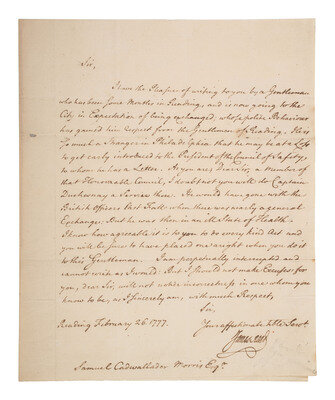 Sir,
I have the Pleasure of writing to you by a Gentleman
who has been some Months in Reading, and is now going to the
City in Expectation of being exchanged, whose polite Behaviour
has gained him respect from the Gentlemen of Reading. He is
so much a Stranger in Philadelphia that he may be at a Loss
to get early introduced to the President of the Council of Safety,
to whom he has a Letter. As you are, dear Sir, a Member of
that Honourable Council, I doubt not you will do Captain
Duchesnay a Service there. He would have gone with the
British Officers last Fall when there was nearly a general
Exchange: But he was then in an ill State of Health.
I know how agreeable it is to you to do every kind Act and
you will be sure to have placed one aright when you do it
to this Gentleman. I am perpetually interrupted and
cannot write as I would. But I should not make Excuses for
you, dear Sir, will not notice incorrectness in one whom you
know to be, as I sincerely am, with much Respect,
Sir,
Your affectionate Servt
Reading February 26. 1777.
Samuel Cadwallader Morris Esqr.